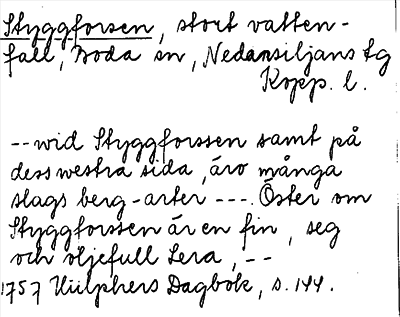 Styggforsen, stort vatten-
fall, Boda sn, Nedansiljans tg
Kopp. l.
--wid Styggforssen samt på
dess westra sida, äro många
slags berg-arter ---. Öster om
Styggforssen är en fin, seg
och oljefull Lera, --
1757 Hülphers Dagbok, s. 144.